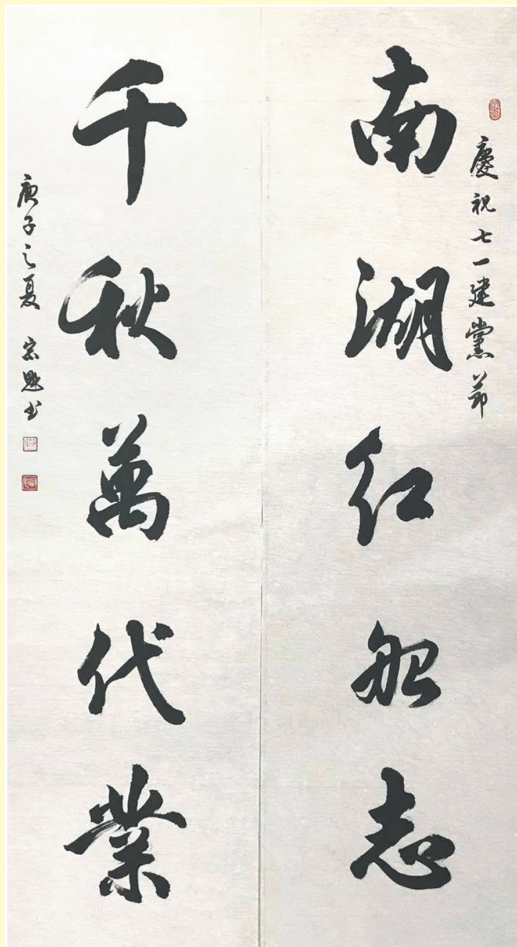 慶祝七一建黨節
南湖红船志
千秋萬代業
庚子之夏 宗